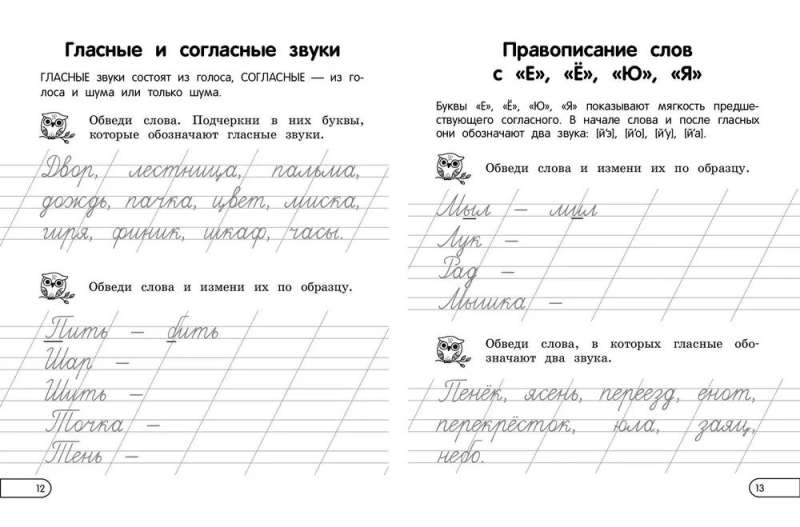 Гласные и согласные звуки
ГЛАСНЫЕ звуки состоят из голоса, СОГЛАСНЫЕ — из го-
лоса и шума или только шума.
Обведи слова. Подчеркни в них буквы,
которые обозначают гласные звуки.
Двор, лестница, пальма,
дождь, пачка, цвет, миска,
гиря, финик, шкаф, часы.
Обведи слова и измени их по образцу.
Пить — бить
Шар —
Шить —
Точка —
Тень —
12
Правописание слов
с «Е», «Ё», «Ю», «Я»
Буквы «Е», «Ё», «Ю», «Я» показывают мягкость предше-
ствующего согласного. В начале слова и после гласных
они обозначают два звука: [й'э], [й'о], [й'у], [й'а].
Обведи слова и измени их по образцу.
Мыл — мил
Лук —
Рад —
Мышка —
Обведи слова, в которых гласные обо-
значают два звука.
Пенёк, ясень, переезд, енот,
перекрёсток, юла, заяц,
небо.
13